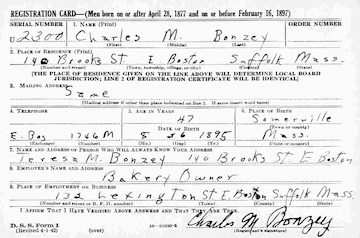 REGISTRATION CARD—(Men born on or after April 28, 1877 and on or before February 16, 1897)
SERIAL NUMBER 1. NAME (Print) ORDER NUMBER
U 2300 Charles M. Bonzey
(First) (Middle) (Last)
2. PLACE OF RESIDENCE (Print)
140 Brooks St. E Boston Suffolk Mass.
(Number and street) (Town, township, village, or city) (County) (State)
[THE PLACE OF RESIDENCE GIVEN ON THE LINE ABOVE WILL DETERMINE LOCAL BOARD
JURISDICTION; LINE 2 OF REGISTRATION CERTIFICATE WILL BE IDENTICAL]
3. MAILING ADDRESS
Same
[Mailing address if other than place indicated on line 2. If same insert word same]
4. TELEPHONE 5. AGE IN YEARS 6. PLACE OF BIRTH
47 Somerville
DATE OF BIRTH (Town or county)
E. Bos 1746M 8 26 1895 Mass.
(Exchange) (Number) (Mo.) (Day) (Yr.) (State or country)
7. NAME AND ADDRESS OF PERSON WHO WILL ALWAYS KNOW YOUR ADDRESS
Teresa M. Bonzey 140 Brooks St. E Boston
8. EMPLOYER'S NAME AND ADDRESS
Bakery Owner
9. PLACE OF EMPLOYMENT OR BUSINESS
132 Lexington St E Boston Suffolk Mass.
(Number and street or R. F. D. number) (Town) (County) (State)
I AFFIRM THAT I HAVE VERIFIED ABOVE ANSWERS AND THAT THEY ARE TRUE.
D. S. S. Form 1
(Revised 4-1-42) (over)
Charles M Bonzey
(Registrant's signature)